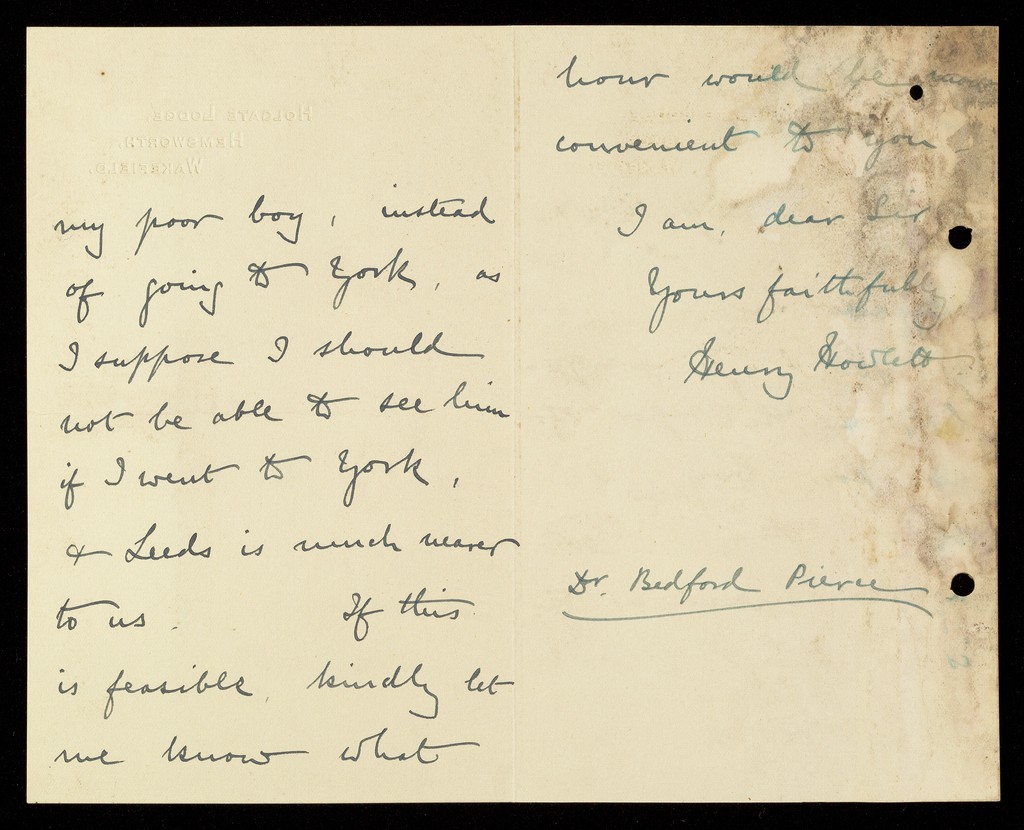 HOLGATE LODGE,
HEMSWORTH,
WAKEFIELD.
my poor boy, instead
of going to York, as
I suppose I should
not be able to see him
if I went to York,
& Leeds is much nearer
to us. If this
is feasible, kindly let
me know what
hour would be more
convenient to you.
I am, dear Sir
Yours faithfully
Henry Howlett.
Dr. Bedford Pierce